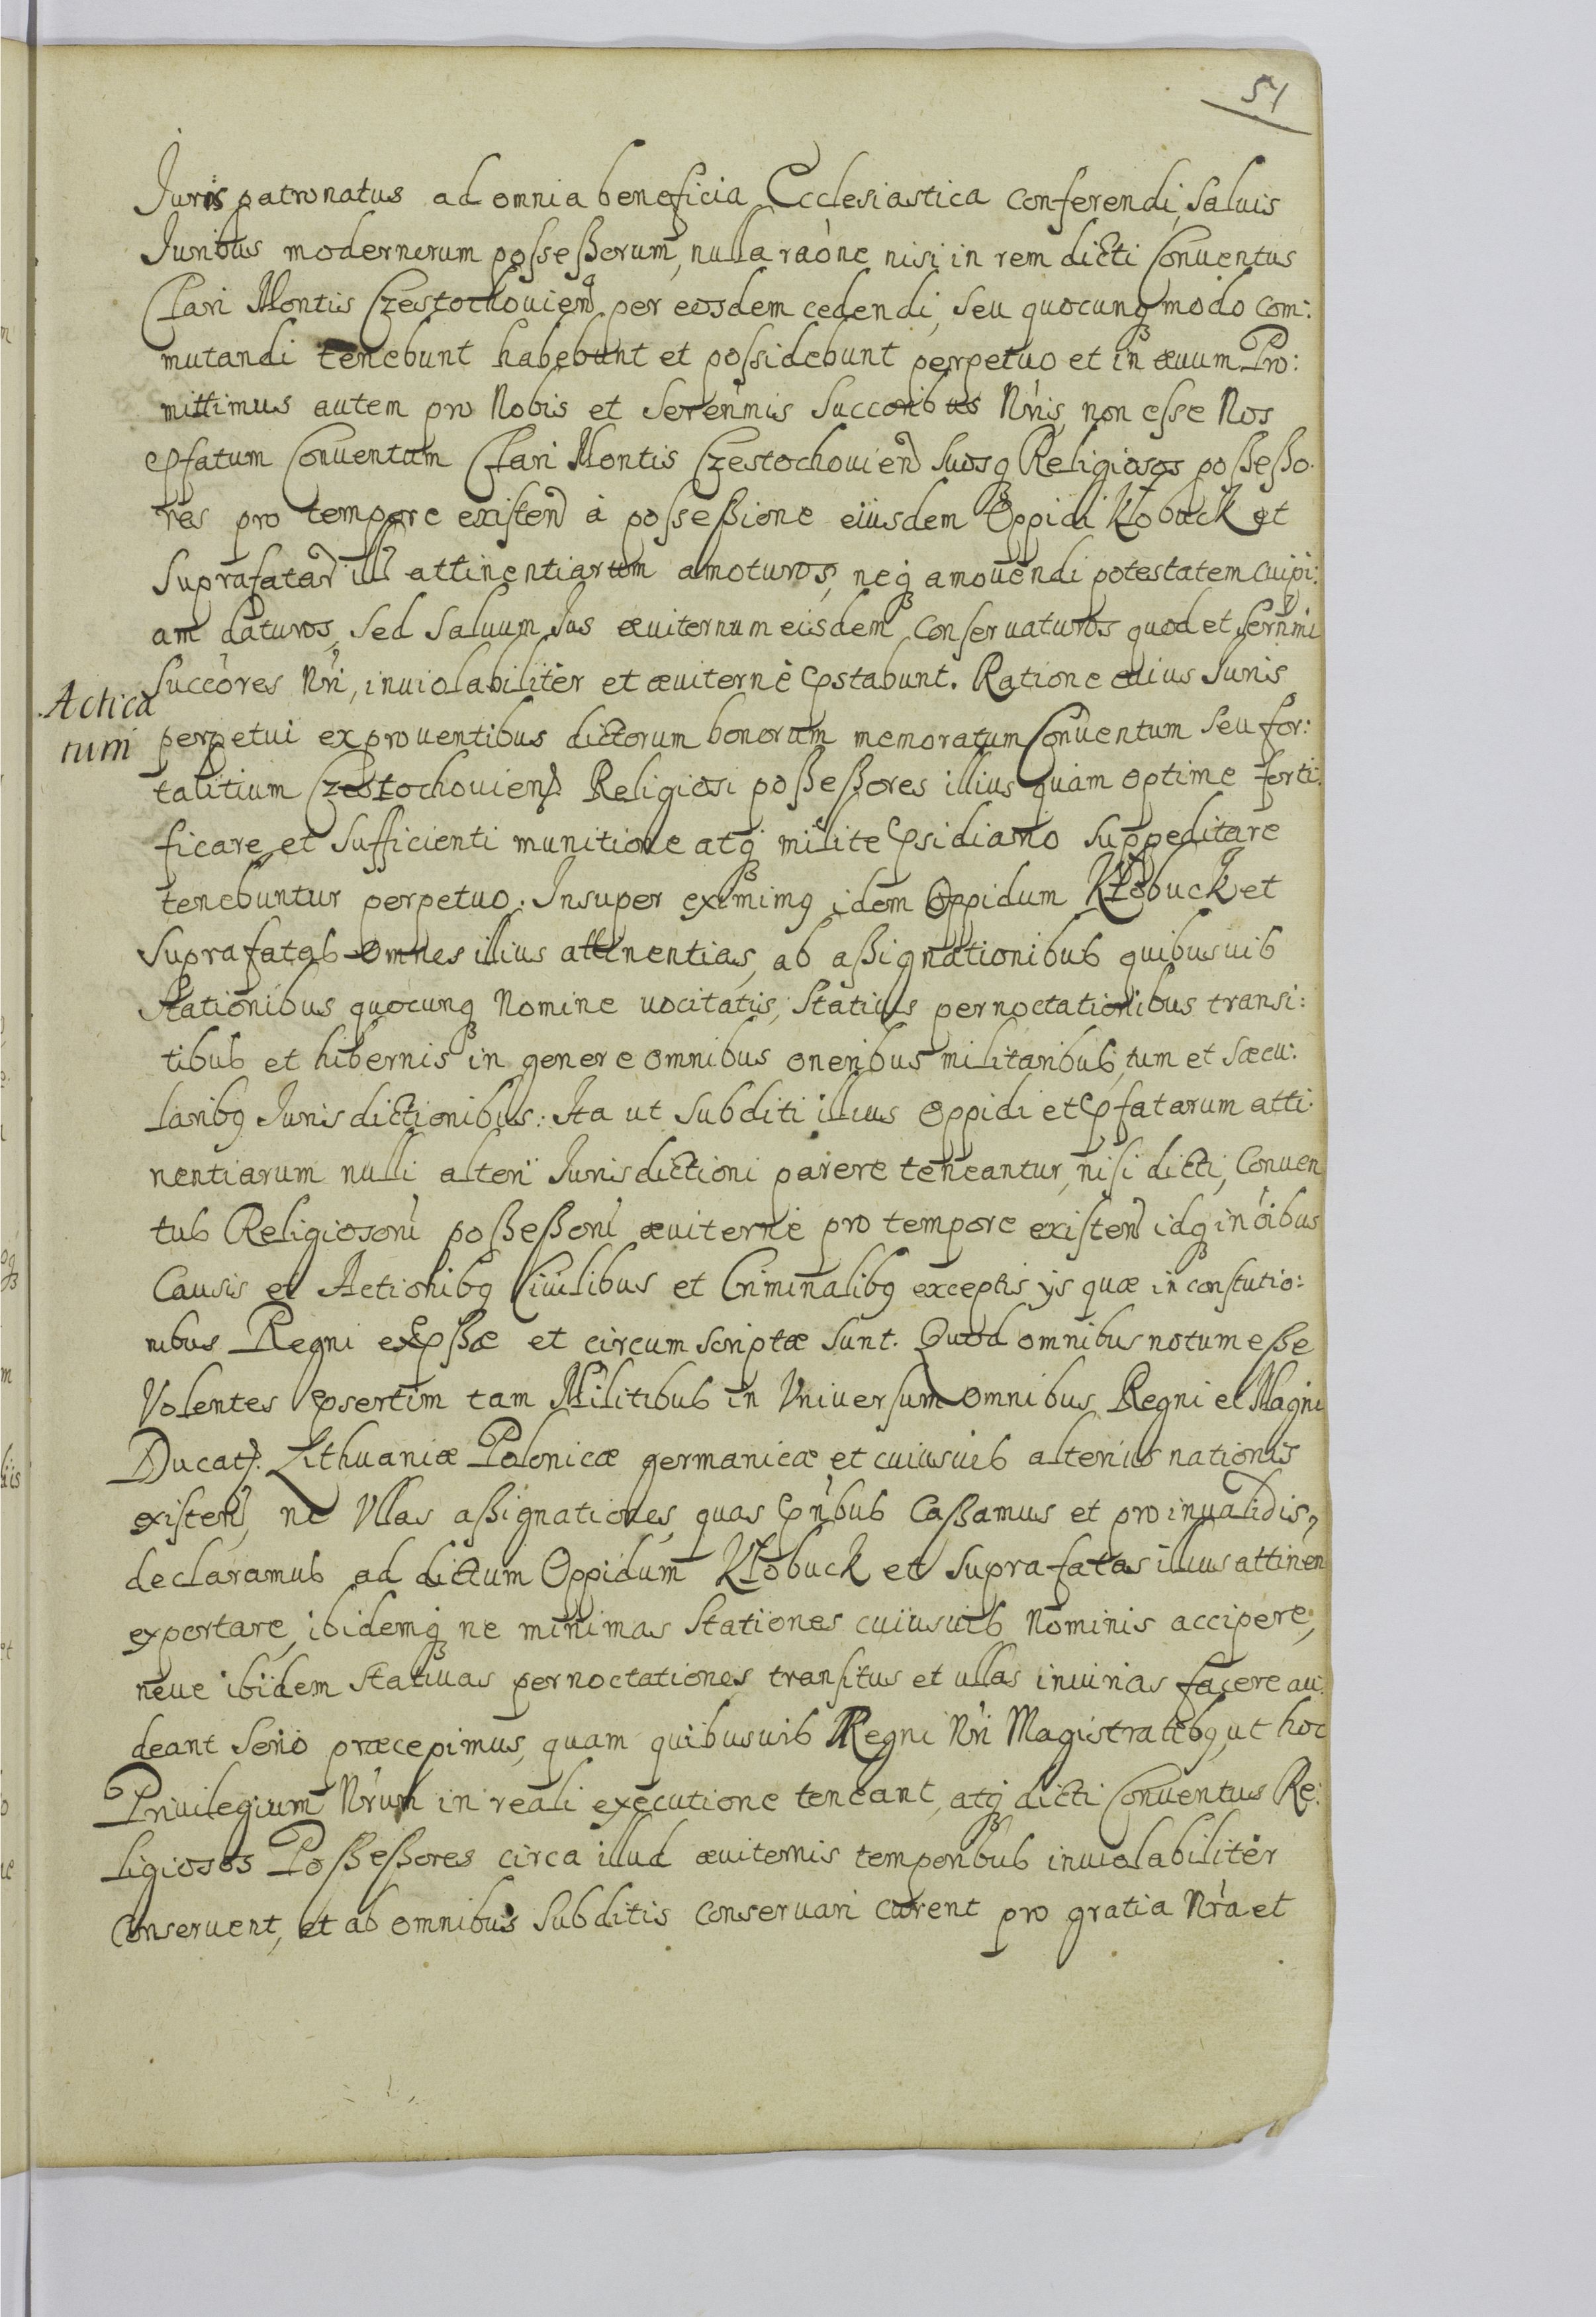 51
Juris patronatus ad omnia beneficia Ecclesiastica conferendi, saluis
Juribus modernorum possessorum, nulla raone nisi in rem dicti Conuentus
Clari Montis Czestochouien per eosdem cedendi, seu quocunq modo com:
mutandi tenebunt habebunt et possidebunt perpetuo et in æuum. Pro:
mittimus autem pro Nobis et Serenmis Succoribus Nris, non esse Nos
pfatum Conuentum Clari Montis Czestochouien suosq Religiosos possesso.
res pro tempore existen à possessione eiusdem Oppidi Kłobuck et
suprafatar ill attinentiarum amoturos, neq amouendi potestatem cuipi:
am daturos, sed saluum Jus æuiternum eisdem conseruaturos quod et Sernmi
Succores Nri, inuiolabiliter et æuiterne pstabunt. Ratione cuius Juris
Actica
tum
perpetui ex prouentibus dictorum bonorum memoratum Conuentum seu for:
talitium Czestochouien Religiosi possessores illius quam optime forti:
ficare et sufficienti munitione atq milite psidiario suppeditare
tenebuntur perpetuo. Insuper eximimq idem Oppidum Kłobuck et
suprafatas omnes illius attinentias, ab assignationibus quibusuis
stationibus quocunq Nomine uocitatis, Statiuis pernoctationibus transi:
tibus et hibernis in genere omnibus oneribus militaribus, tum et sæcu:
laribq Jurisdictionibus: Ita ut subditi illius Oppidi et pfatarum atti:
nentiarum nulli alteri Jurisdictioni parere teneantur, nisi dicti, Conuen
tus Religiosoru possessoru æuiterne pro tempore existen idq in oibus
Causis et Actionibq Ciuilibus et Criminalibq exceptis ÿs quæ in constutio:
nibus Regni expssæ et circumscriptæ sunt. Quod omnibus notum esse
Volentes psertim tam Militibus in Vniuersum omnibus Regni et Magni
Ducat. Lithuaniæ Polonicæ germanicæ et cuiusuis alterius nationis
existen, ne Vllas assignationes, quas pntibus Cassamus et pro inualidis,
declaramus ad dictum Oppidum Kłobuck et suprafatas illius attinen
exportare, ibidemq ne minimas Stationes cuiusuis Nominis accipere,
neue ibidem statiuas pernoctationes transitus et ullas iniurias facere au:
deant serio præcepimus, quam quibusuis Regni Nri Magistratibq, ut hoc
Priuilegium Nrum in reali executione teneant, atq dicti Conuentus Re:
ligiosos Possessores circa illud æuiternis temporibus inuiolabiliter
conseruent, et ab omnibus subditis conseruari curent pro gratia Nra et